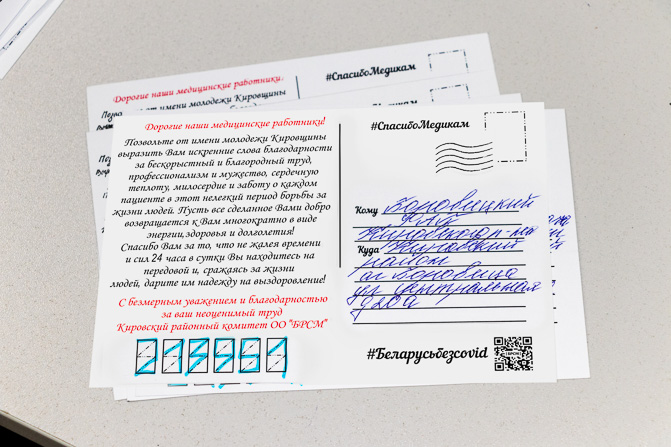 Дорогие наши медицинские работники.
#СпасибоМедикам
от имени молодежи Кировщины
Дорогие наши медицинские работники!
Позвольте от имени молодежи Кировщины
выразить Вам искренние слова благодарности
за бескорыстный и благородный труд,
профессионализм и мужество, сердечную
теплоту, милосердие и заботу о каждом
пациенте в этот нелегкий период борьбы за
жизни людей. Пусть все сделанное Вами добро
возвращается к Вам многократно в виде
энергии,здоровья и долголетия!
Спасибо Вам за то, что не жалея времени
и сил 24 часа в сутки Вы находитесь на
передовой и, сражаясь за жизни
людей, дарите им надежду на выздоровление!
С безмерным уважением и благодарностью
за ваш неоценимый труд
Кировский районный комитет ОО "БРСМ"
#СпасибоМедикам
Кому Боровицкий
ФАП
Кировского р-на
Куда Кировский
район
аг Боровица
ул Центральная
д20а
#Беларусьбезcovid